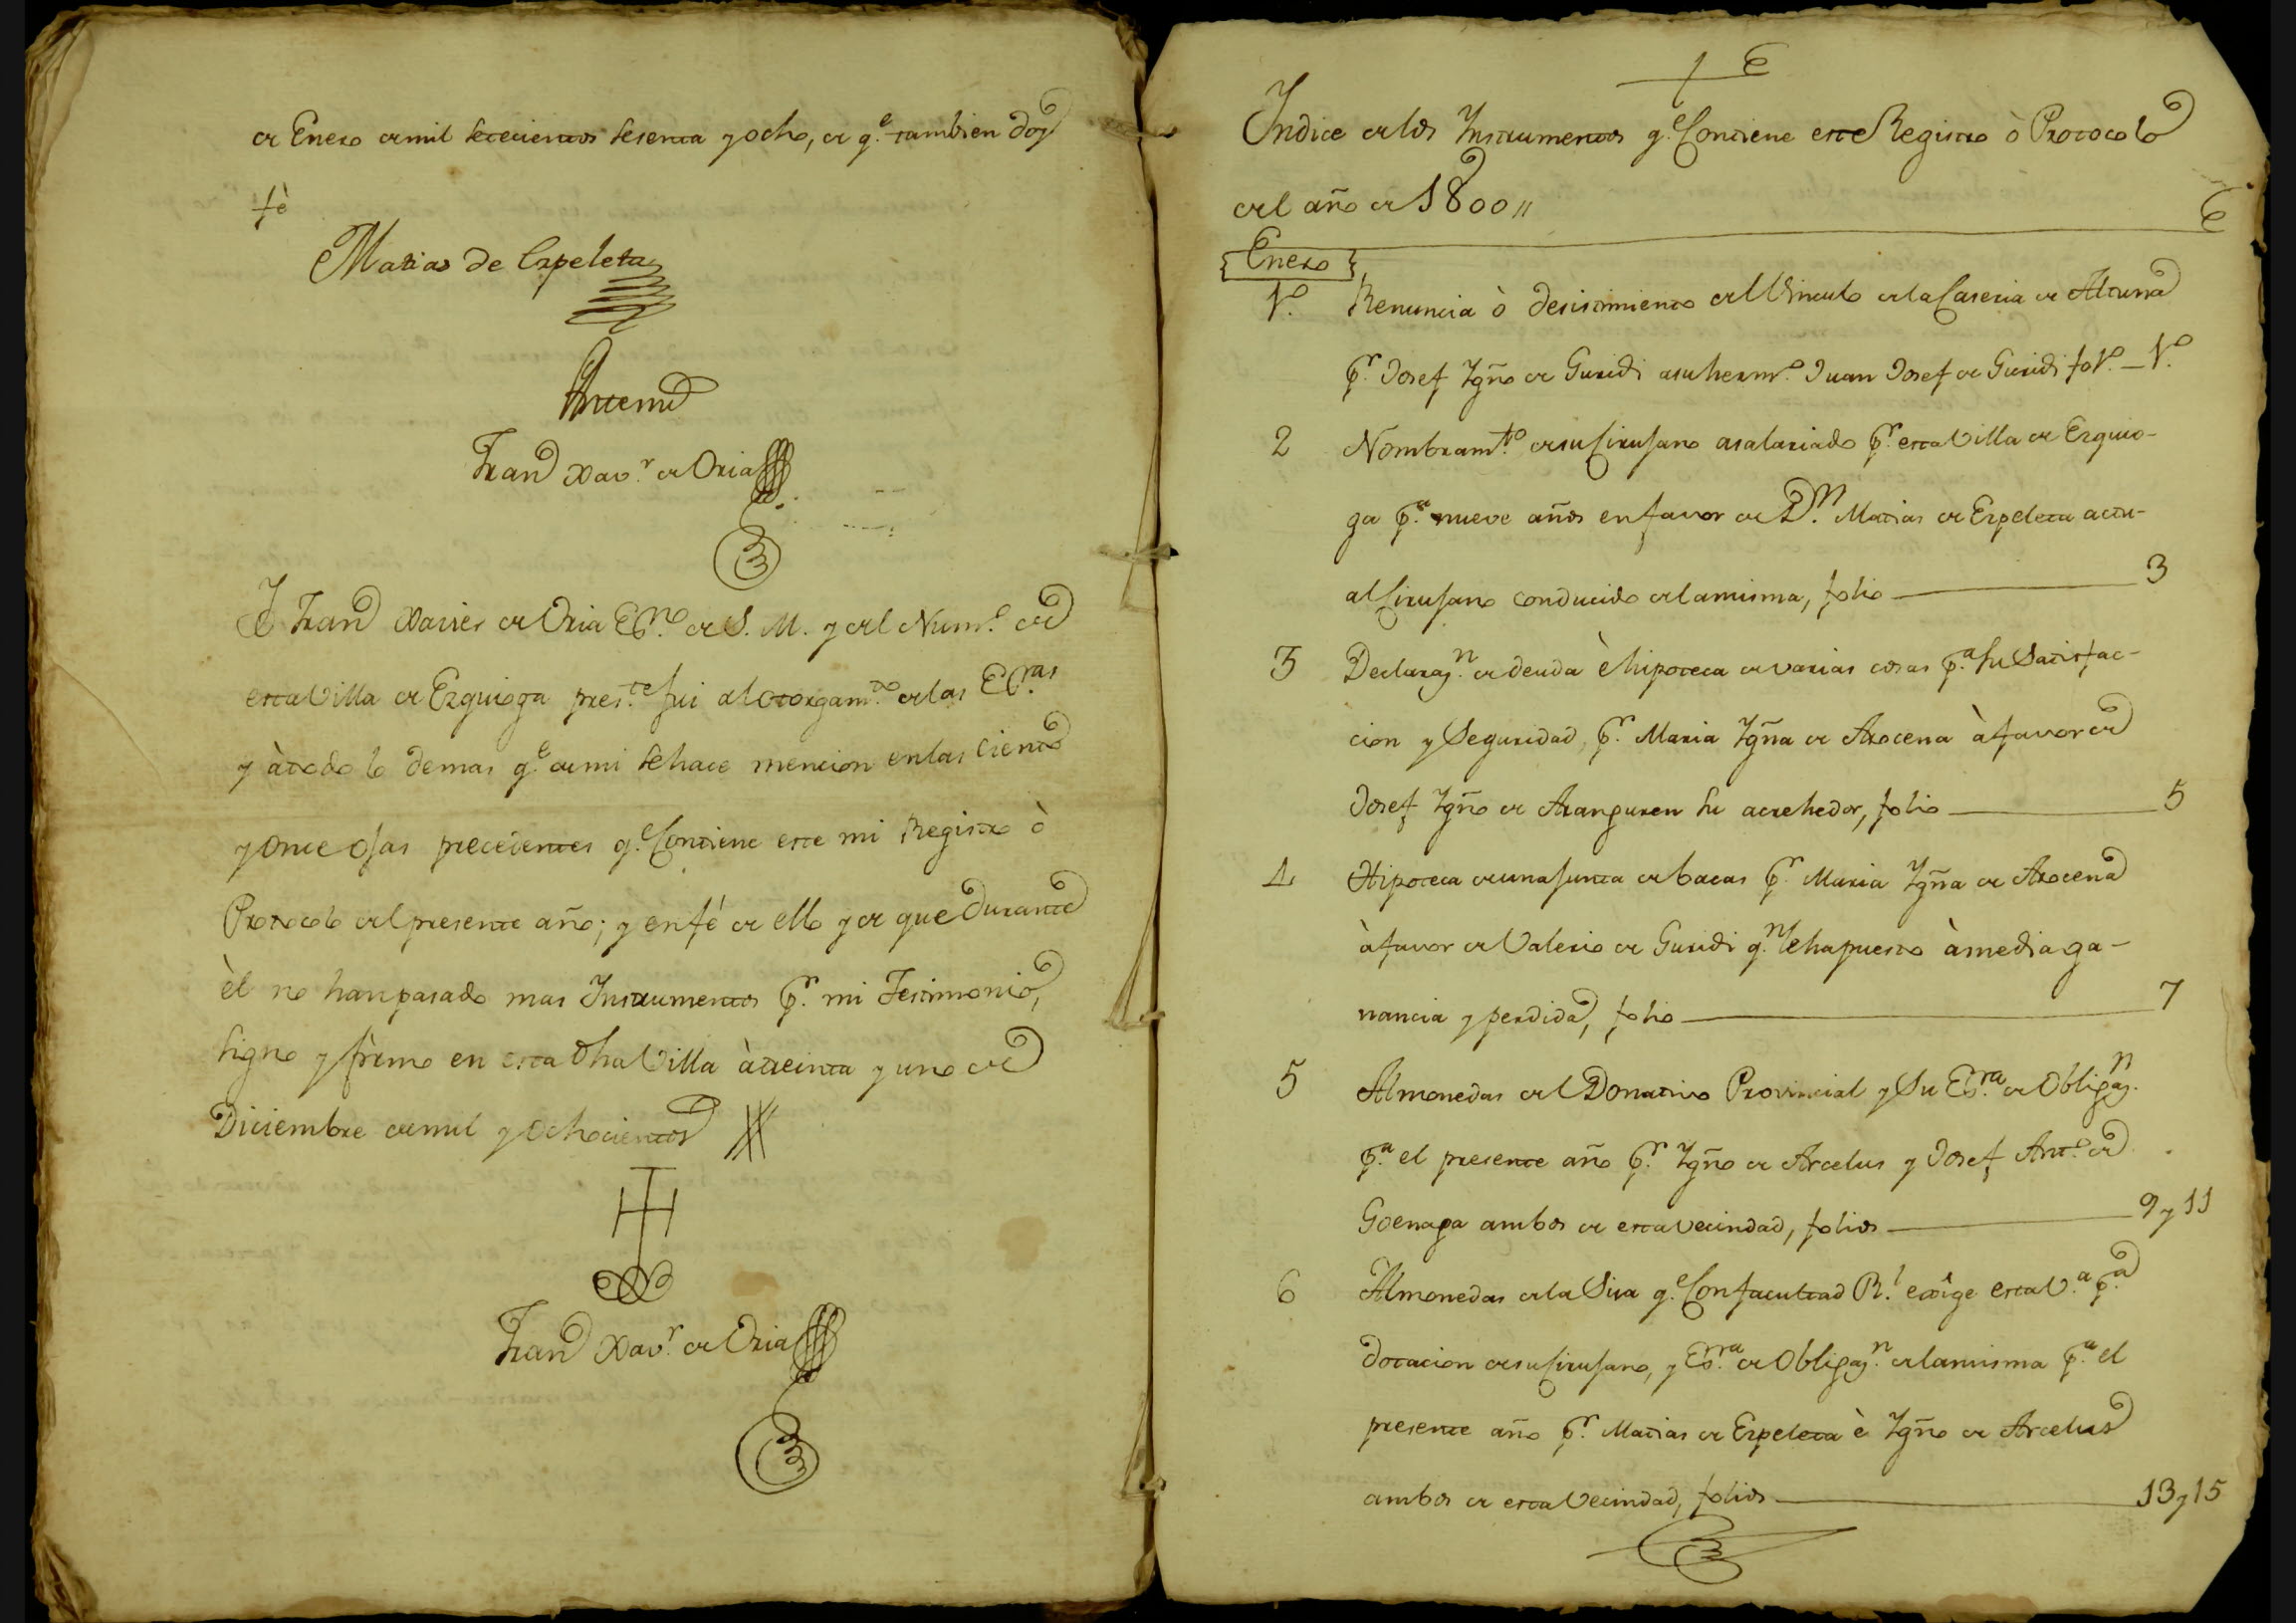 de Enero de mil setecientos sesenta y ocho, de q.e tambien doy
fè
Matias de Ezpeleta
Antemi
Fran.co Xav.r de Oria
Yo Fran.co Xavier de Oria Es.no de S. M. y del Num.o de
esta Villa de Ezquioga pres.te fui al otorgam.to de las Es.ras
y à todo lo demas q.e de mi se hace mencion en las ciento
y once ojas precedentes q.e Contiene este mi Registro ò
Protocolo del presente año; y en fé de ello y de que durante
èl no han pasado mas Instrumentos p.r mi Testimonio,
signo y firmo en esta dha Villa à treinta y uno de
Diciembre de mil y ochocientos
Fran.co Xav.r de Oria
Indice de los Instrumentos q.e Contiene este Registro ò Protocolo
del año de 1800
Enero
1.o Renuncia ò desistimiento del Vinculo de la Caseria de Altuna
p.r Josef Ygño de Guridi a su herm.o Juan Josef de Guridi fo 1.o — 1.o
2 Nombram.to de su Cirujano asalariado p.r esta Villa de Ezquio-
ga p.a nueve años en favor de D.n Matias de Ezpeleta actu-
al Cirujano conducido de la misma, folio — 3
3 Declaraz.n de deuda è hipoteca de varias cosas p.a su Satisfac-
cion y Seguridad, p.r Maria Ygña de Arocena à favor de
Josef Ygño de Aranguren su acrehedor, folio — 5
4 Hipoteca de una junta de bacas p.r Maria Ygña de Arocena
à favor de Valerio de Guridi q.n le ha puesto à media ga-
nancia y perdida, folio — 7
5 Almonedas del Donativo Provincial y Su Es.ra de Obligaz.n
p.a el presente año p.r Ygño de Arcelus y Josef Ant.o de
Goenaga ambos de esta vecindad, folios — 9 y 11
6 Almonedas de la Sisa q.e Con facultad R.l exîge esta V.a p.a
dotacion de su Cirujano, y Es.ra de Obligaz.n de la misma p.a el
presente año p.r Matias de Ezpeleta è Ygño de Arcelus
ambos de esta Vecindad, folios — 13 y 15